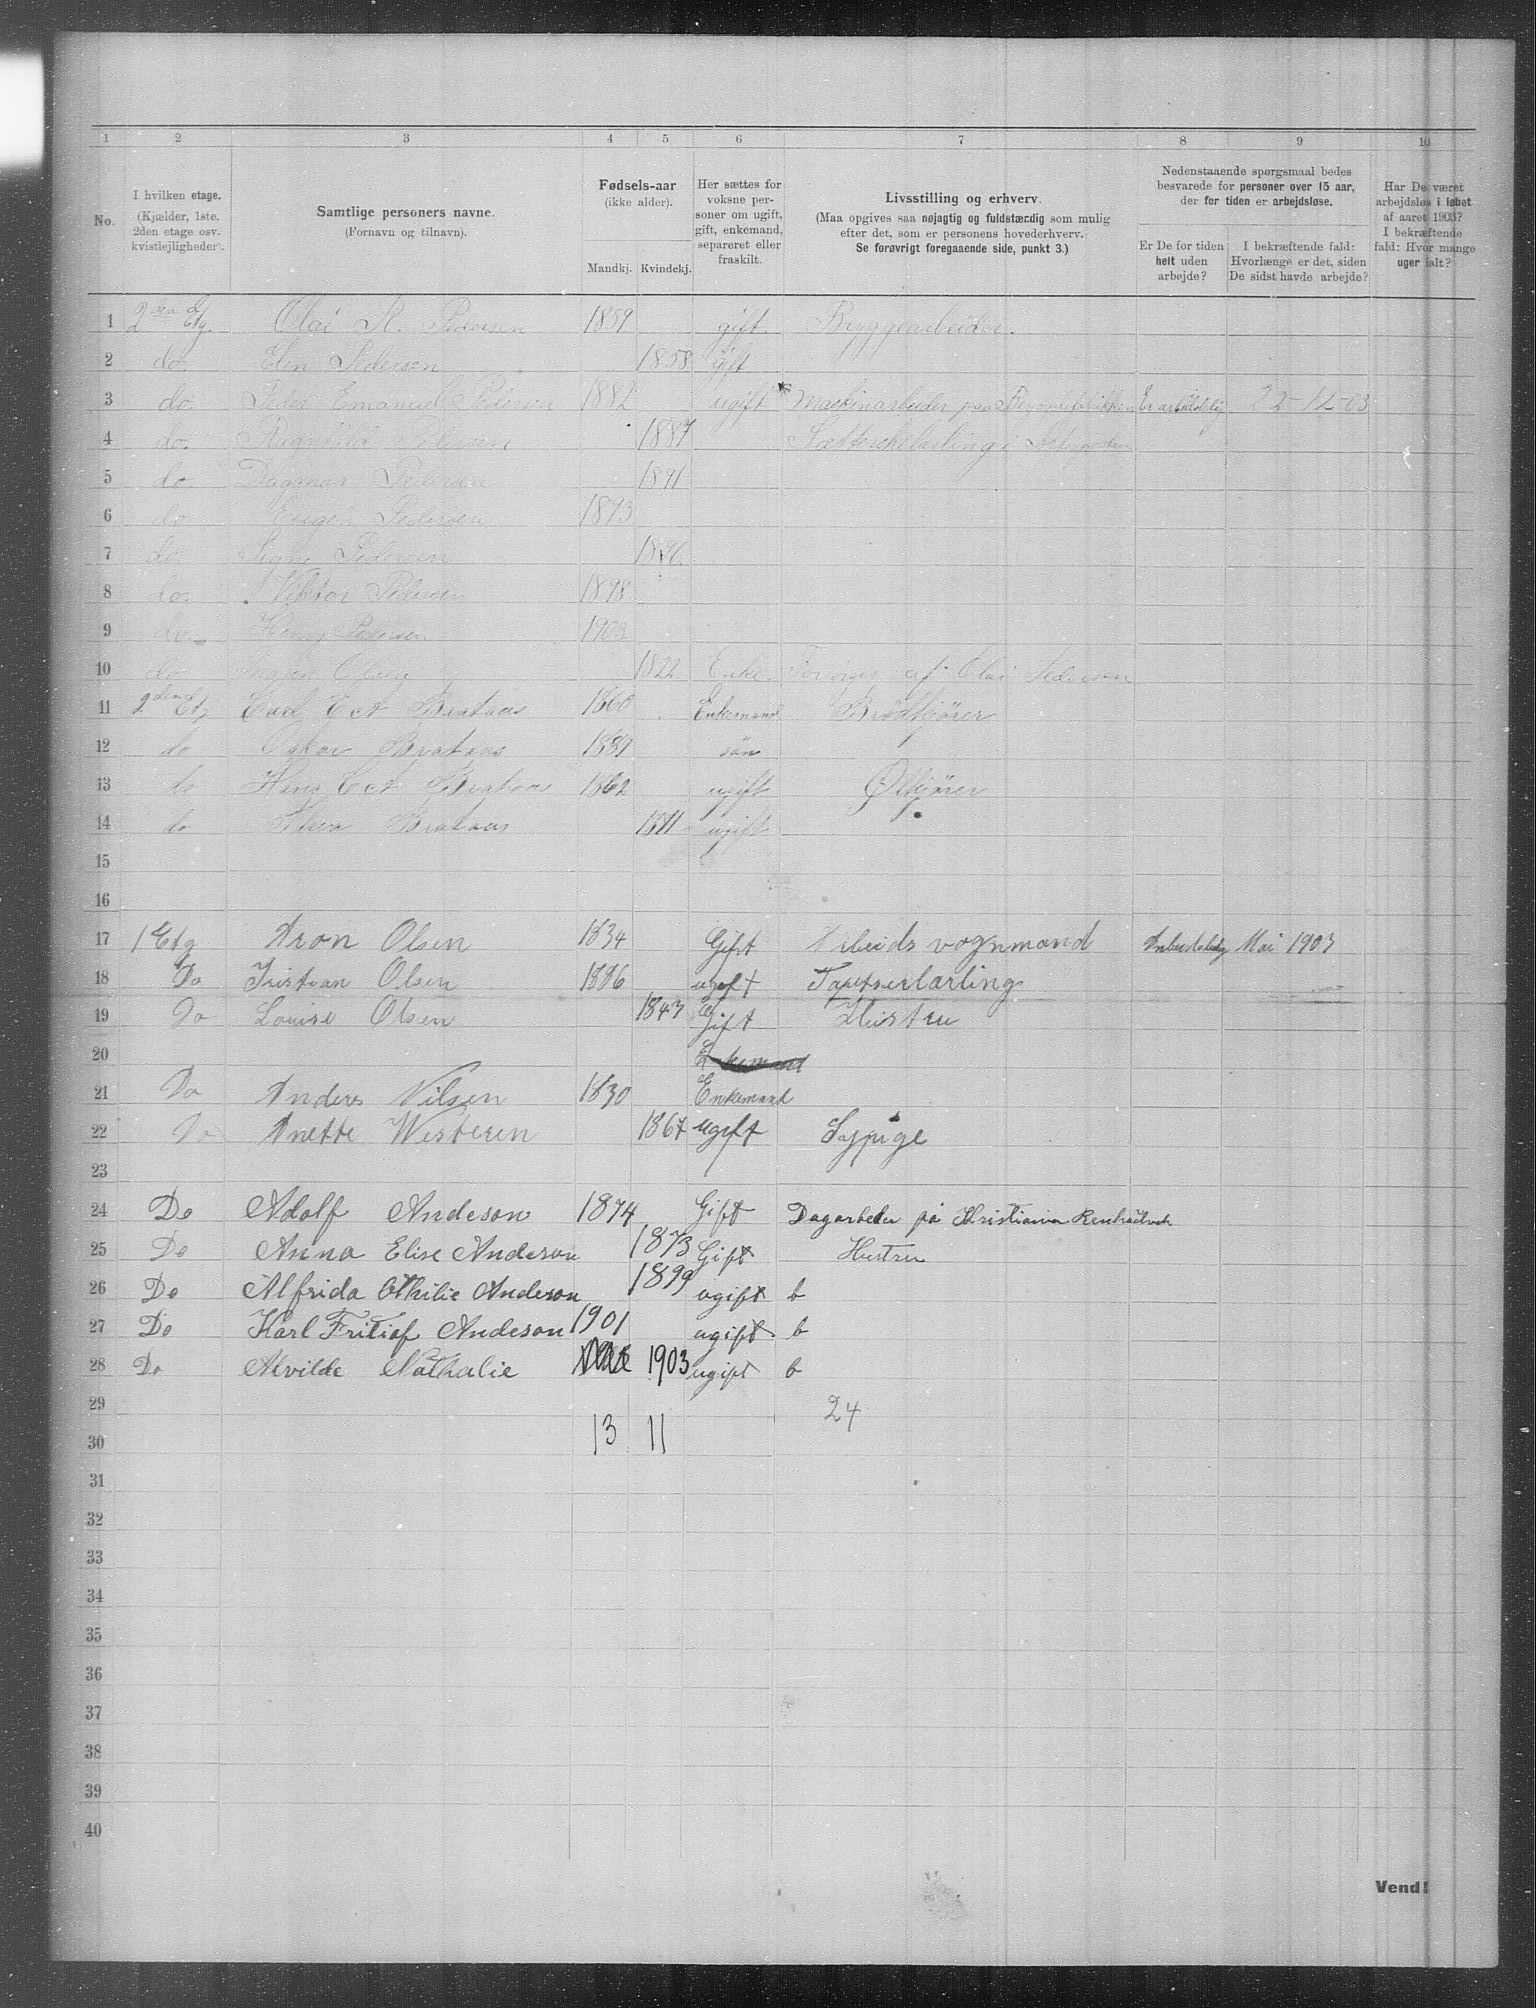 1 2 3 4 5 6 7 8 9 10
No.
I hvilken etage.
(Kjælder, 1ste, 2den etage osv. kvistlejligheder).
Samtlige personers navne.
(Fornavn og tilnavn).
Fødsels-aar
(ikke alder).
Mandkj. Kvindekj.
Her sættes for voksne personer om ugift, gift, enkemand, separeret eller fraskilt.
Livsstilling og erhverv.
(Maa opgives saa nøjagtig og fuldstændig som mulig efter det, som er personens hovederhverv.
Se forøvrigt foregaaende side, punkt 3.)
Nedenstaaende spørgsmaal bedes besvarede for personer over 15 aar, der for tiden er arbejdsløse.
Er De for tiden helt uden arbejde?
I bekræftende fald: Hvorlænge er det, siden De sidst havde arbejde?
Har De været arbejdsløs i løbet af aaret 1903? I bekræftende fald: Hvor mange uger ialt?
1 2den Etg. Olai A. Pedersen 1859 gift Bryggearbeider.
2 do. Elen Pedersen 1858 gift
3 do. Peder Emanuel Pedersen 1882 ugift Maskinarbeider paa Er arbeidsløs 22-12-03
4 do. Ragnhild Pedersen 1887 i Aftenposten
5 do. Dagmar Pedersen 1891
6 do Eugen Pedersen 1893
7 do Signe Pedersen 1896
8 do. Viktor Pedersen 1898
9 do Henry Pedersen 1903
10 do Olsen 1822 Enke Forsørges af Olai Pedersen
11 2den Etg Carl Brataas 1860 Enkemand Brødkjører
12 do Oskar Brataas 1889 søn
13 do Hans Brataas 1862 ugift Ølkjører
14 do Thea Brataas ugift
15
16
17 1 Etg Aron Olsen 1834 Gift Arbeids vognmand Arbeidsledig Mai 1903
18 Do Kristian Olsen 1886 ugift Tapetserlærling
19 Do Louise Olsen 1843 Gift Hustru
20 Enkemand
21 Do Anders Nilsen 1830 Enkemand
22 Do Anette Westeren 1867 ugift Sypige
23
24 Do Adolf Andeson 1874 Gift Dagarbeider på Kristiania Renholdsverk
25 Do Anna Elise Andeson 1873 Gift Hustru
26 Do Alfrida Othilie Andeson 1899 ugift b
27 Do Karl Fritiof Andeson 1901 ugift b
28 Do Alvilde Nathalie 1903 ugift b
29 24
30 13 11
31
32
33
34
35
36
37
38
39
40
Vend!